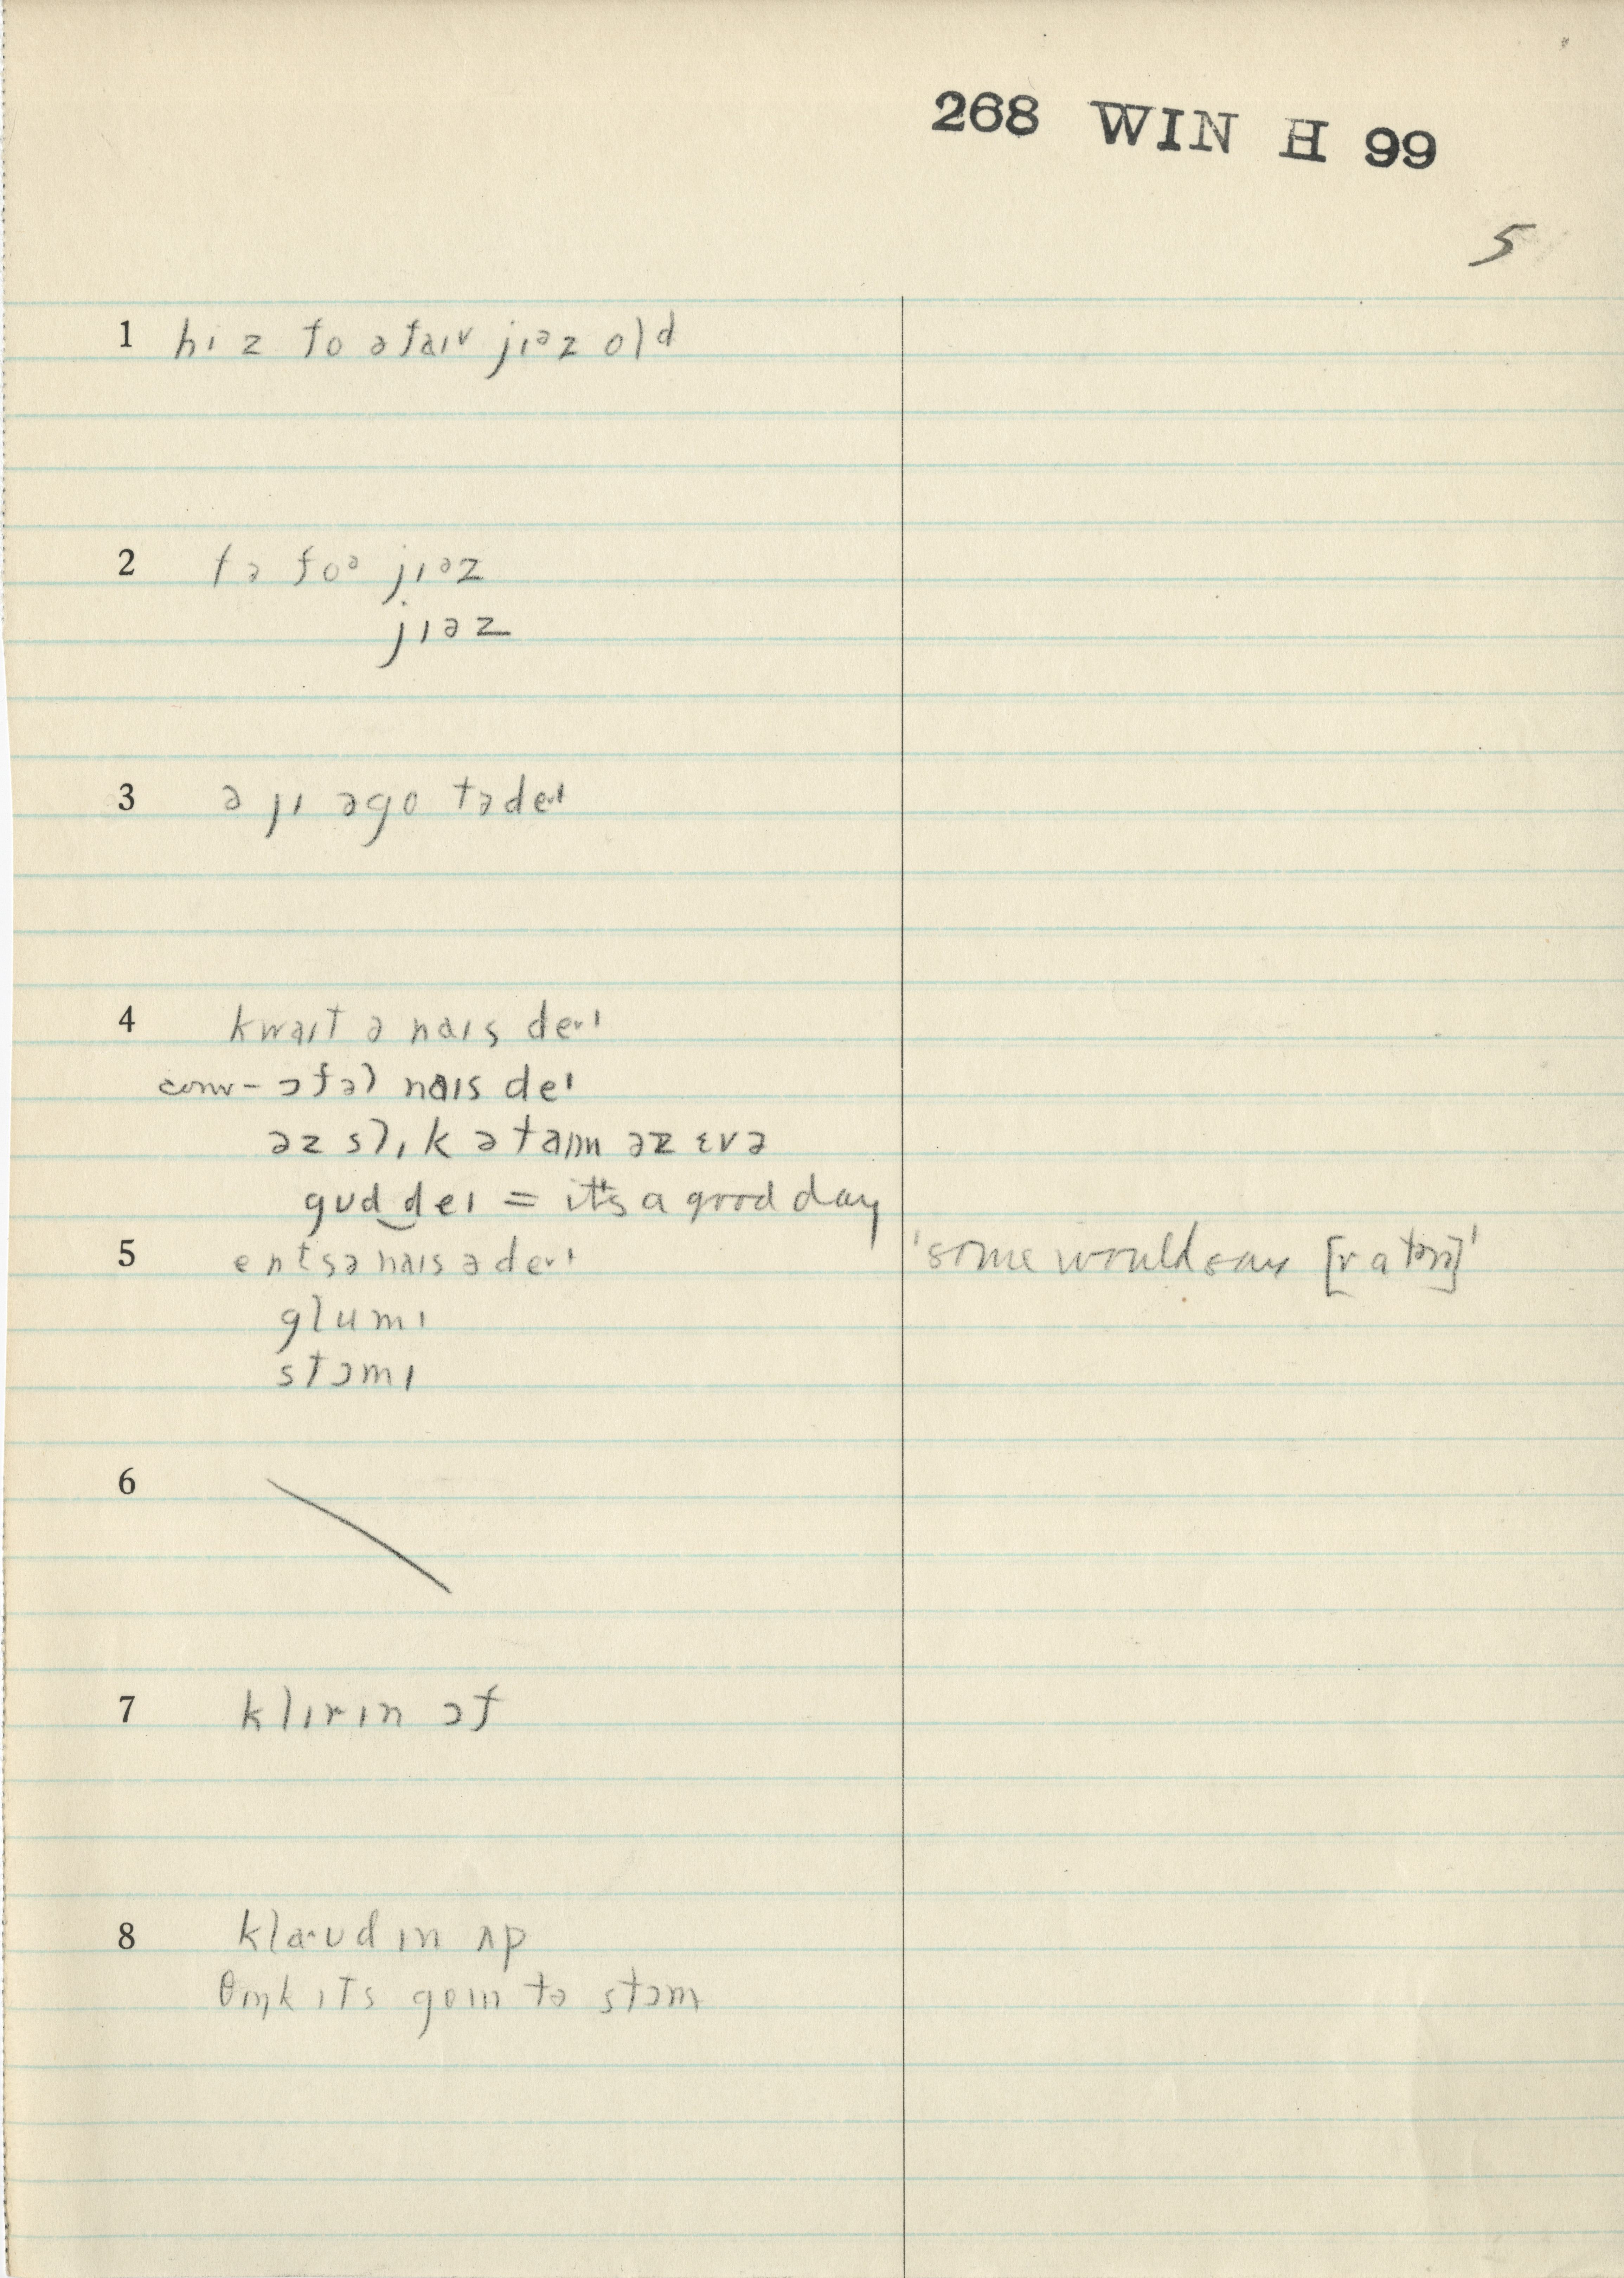 268 WIN H 99
5
1 hɪ z fo ə faɪv jɪəz old
2 tə foə jɪəz
jɪəz
3 ə jɪ əgo tədeɪ
4 kwaɪt ə naɪs deˑɪ
conv- ɔfəl naɪs deɪ
əz slɪk ə taɪm əz ɛvə
gʊd deɪ = it's a good day
5 entsə naɪs ə deˑɪ 'some would say
glumɪ
stɔmɪ
6
7 klɪrɪn ɔf
8 klaˑʊdɪn ʌp
θɪŋk ɪts goɪn tə stɔm